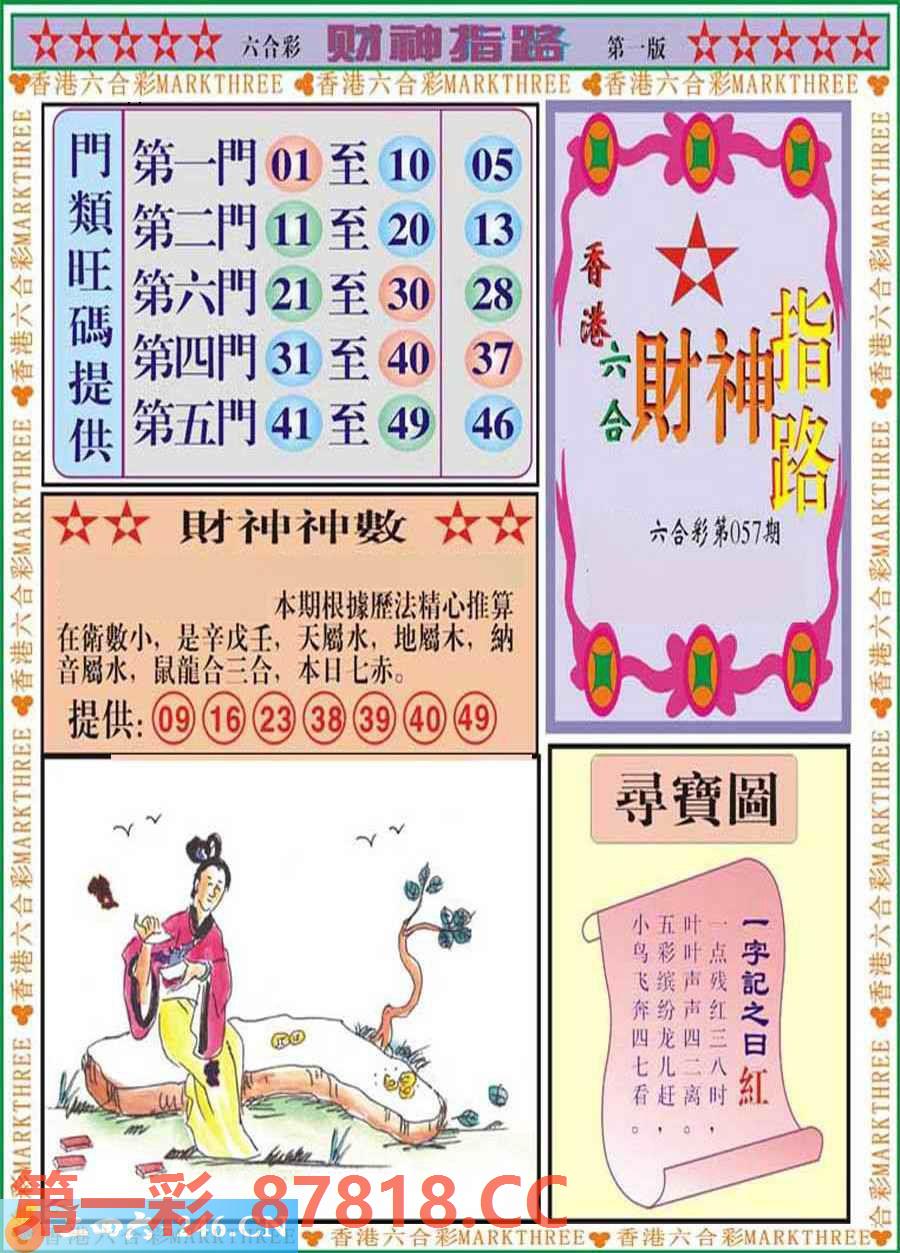 六合彩 财神指路 第一版
香港六合彩MARKTHREE 香港六合彩MARKTHREE 香港六合彩MARKTHREE
門類旺碼提供
第一門 01 至 10 05
第二門 11 至 20 13
第六門 21 至 30 28
第四門 31 至 40 37
第五門 41 至 49 46
香港六合
財神指路
六合彩第057期
財神神數
本期根據歷法精心推算
在衛數小，是辛戊壬，天屬水，地屬木，納
音屬水，鼠龍合三合，本日七赤。
提供: 09 16 23 38 39 40 49
尋寶圖
一字記之曰紅
一点残红三八时，
叶叶声声四二离。
五彩缤纷龙儿赶，
小鸟飞奔四七看。
第一彩 87818.CC
246.CN
香港六合彩MARKTHREE
香港六合彩MARKTHREE
香港六合彩MARKTHREE
香港六合彩MARKTHREE
香港六合彩MARKTHREE
香港六合彩MARKTHREE
香港六合彩MARKTHREE
香港六合彩MARKTHREE